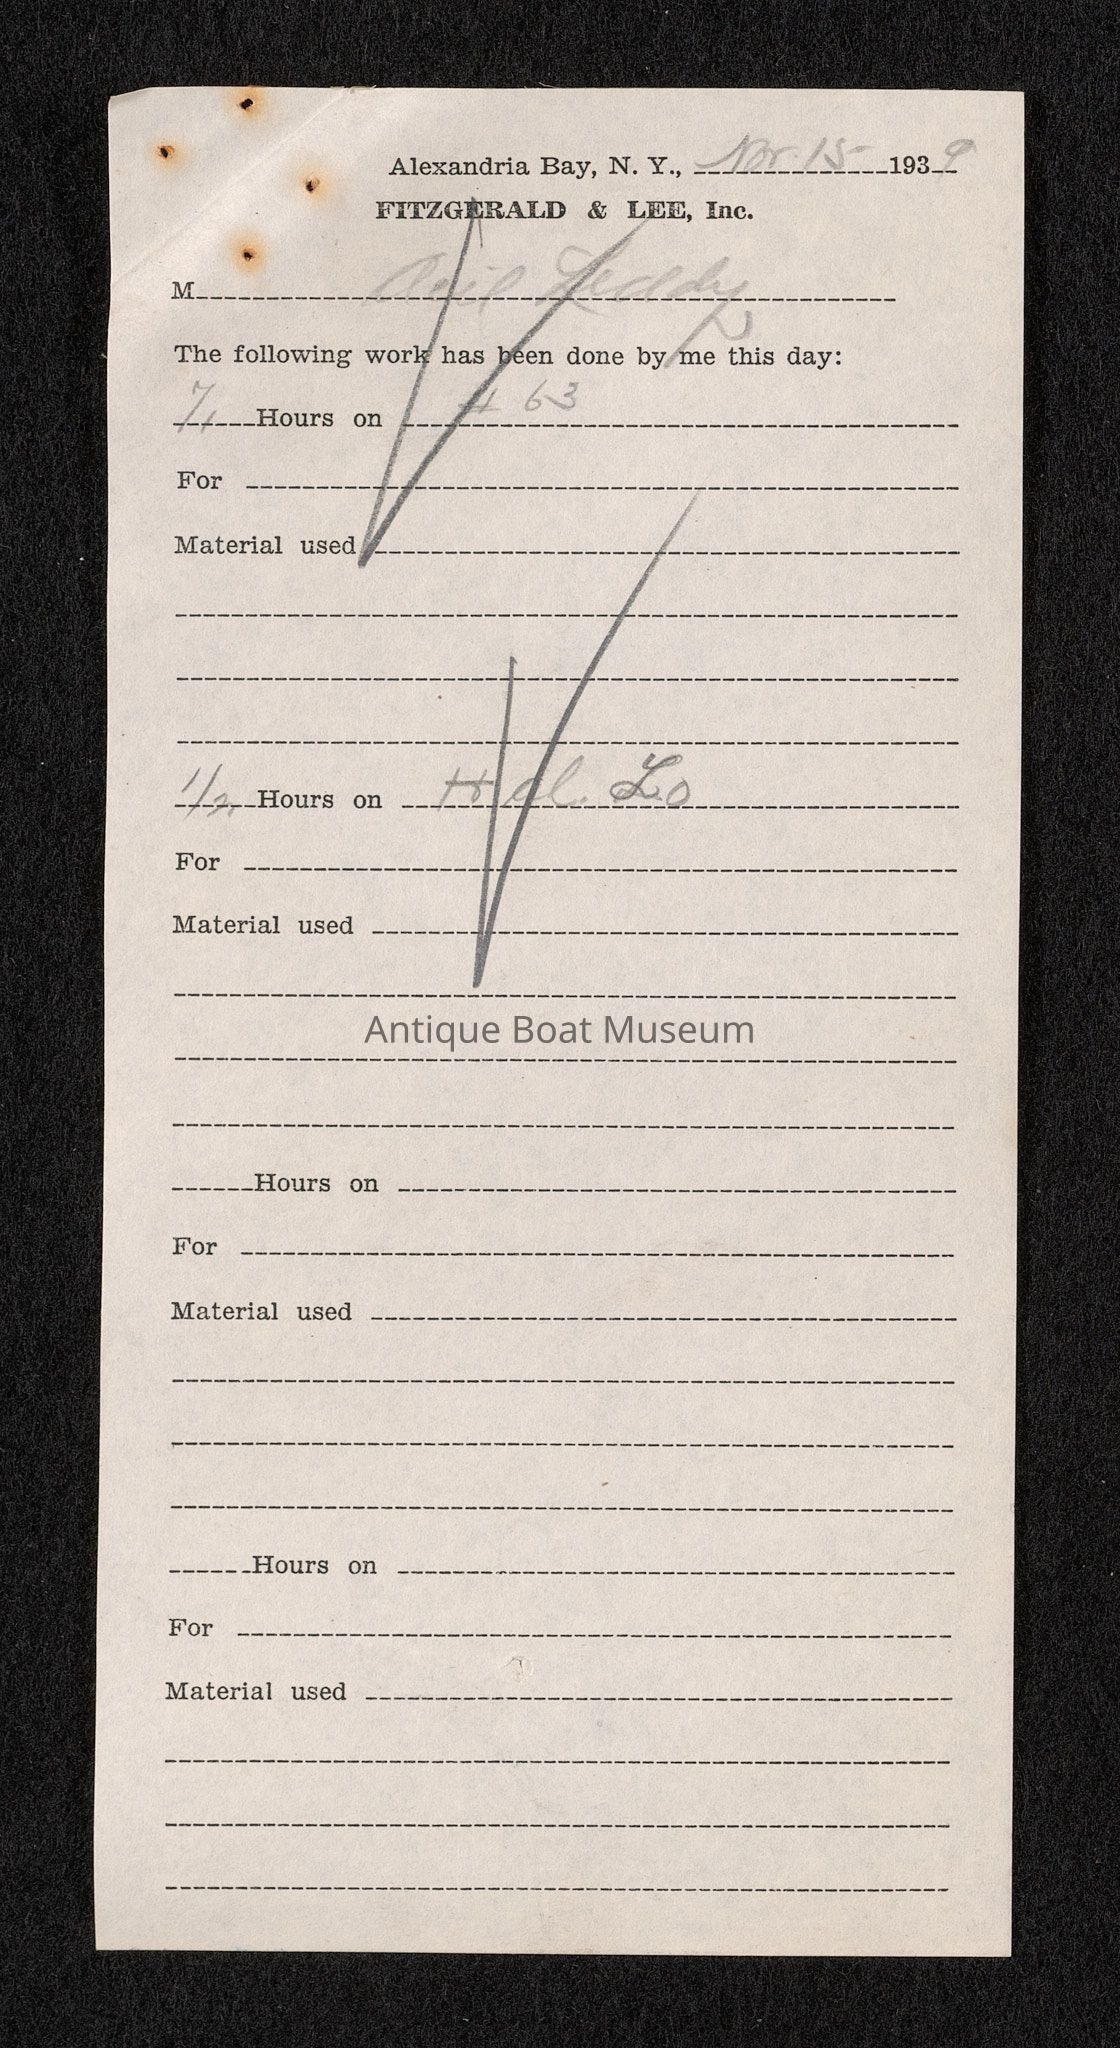 Alexandria Bay, N. Y., Nov. 15 1939
FITZGERALD & LEE, Inc.
M
The following work has been done by me this day:
7 Hours on # 63
For
Material used
1/2 Hours on
For
Material used
Antique Boat Museum
Hours on
For
Material used
Hours on
For
Material used